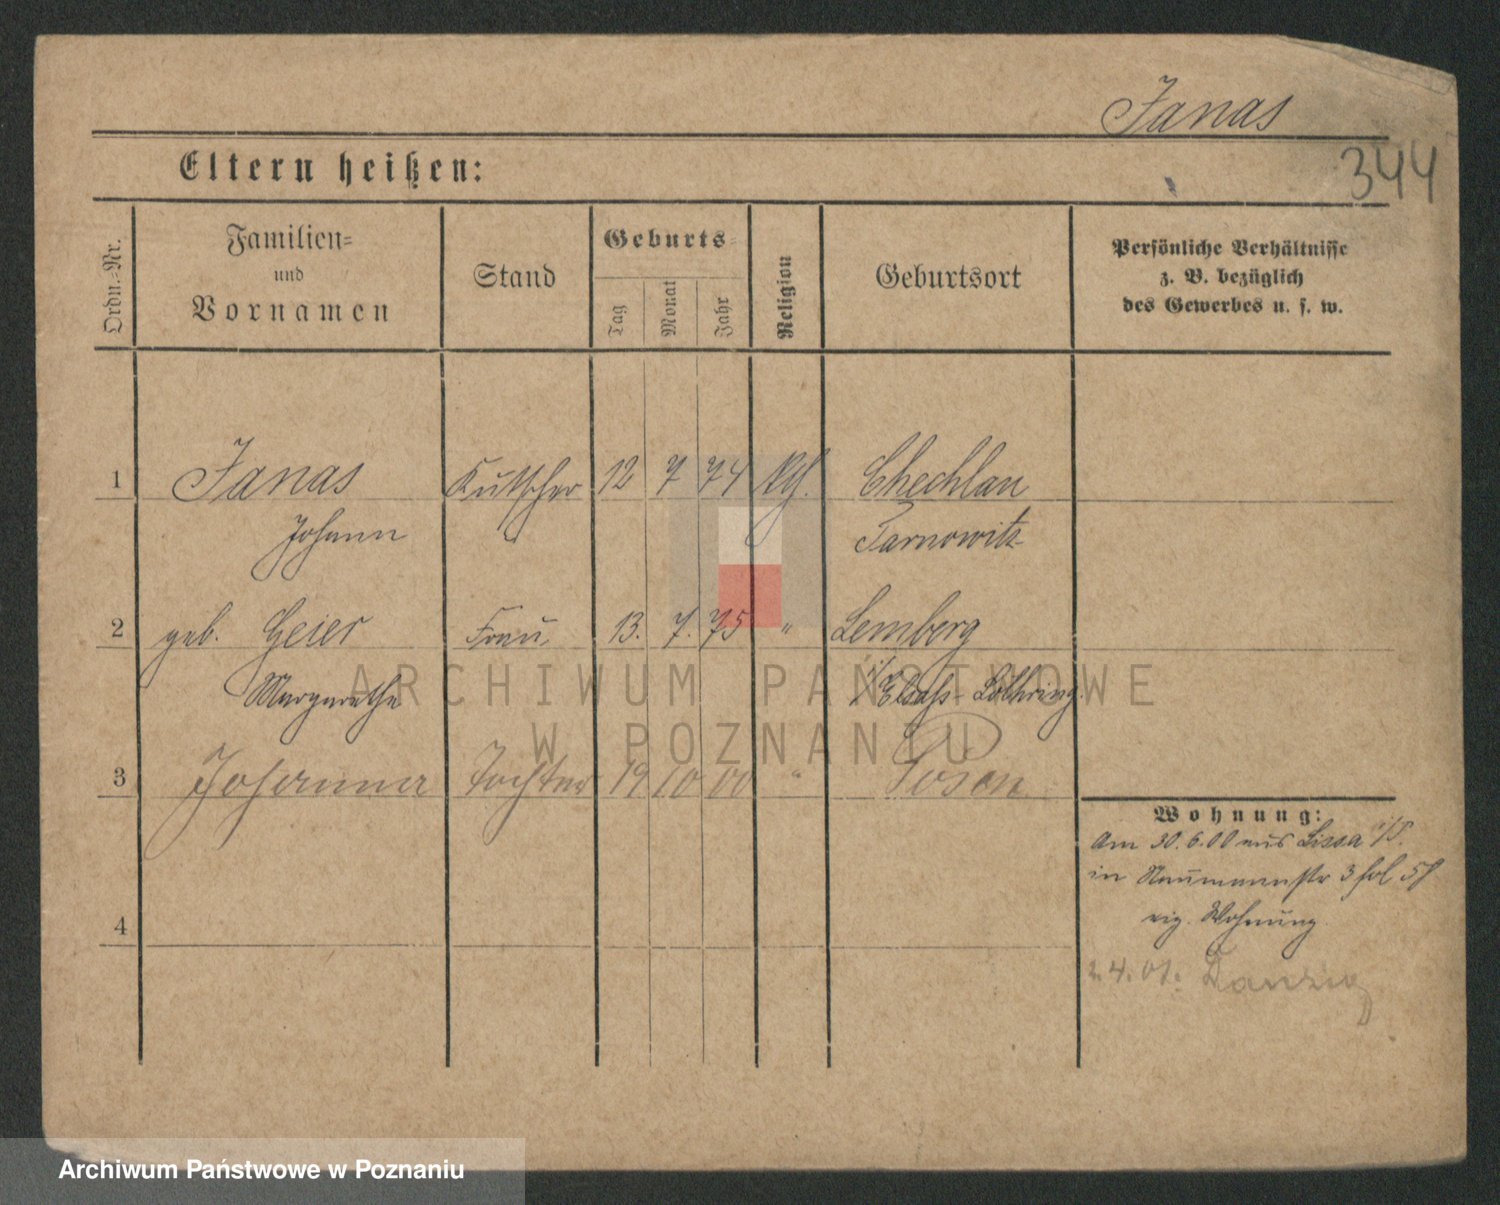 Janas
344
Eltern heißen:
Ordn.-Nr.
Familien-
und
Vornamen
Stand
Geburts-
Tag
Monat
Jahr
Religion
Geburtsort
Persönliche Verhältnisse
z. B. bezüglich
des Gewerbes u. s. w.
1 Janas Kutscher 12 7 74 Chechlau
Johann Tarnowitz
2 geb. Geier Frau 13. 7. 75 " Lemberg
Margarethe i/Elsaß-Lothring.
3 Johanna Tochter 19 10 00 " Posen
Wohnung:
Am 30.6.00 aus Lissa i/P.
in Naumannstr 3
eig. Wohnung
4
2.4.01. Danzig
ARCHIWUM PAŃSTWOWE
W POZNANIU
Archiwum Państwowe w Poznaniu